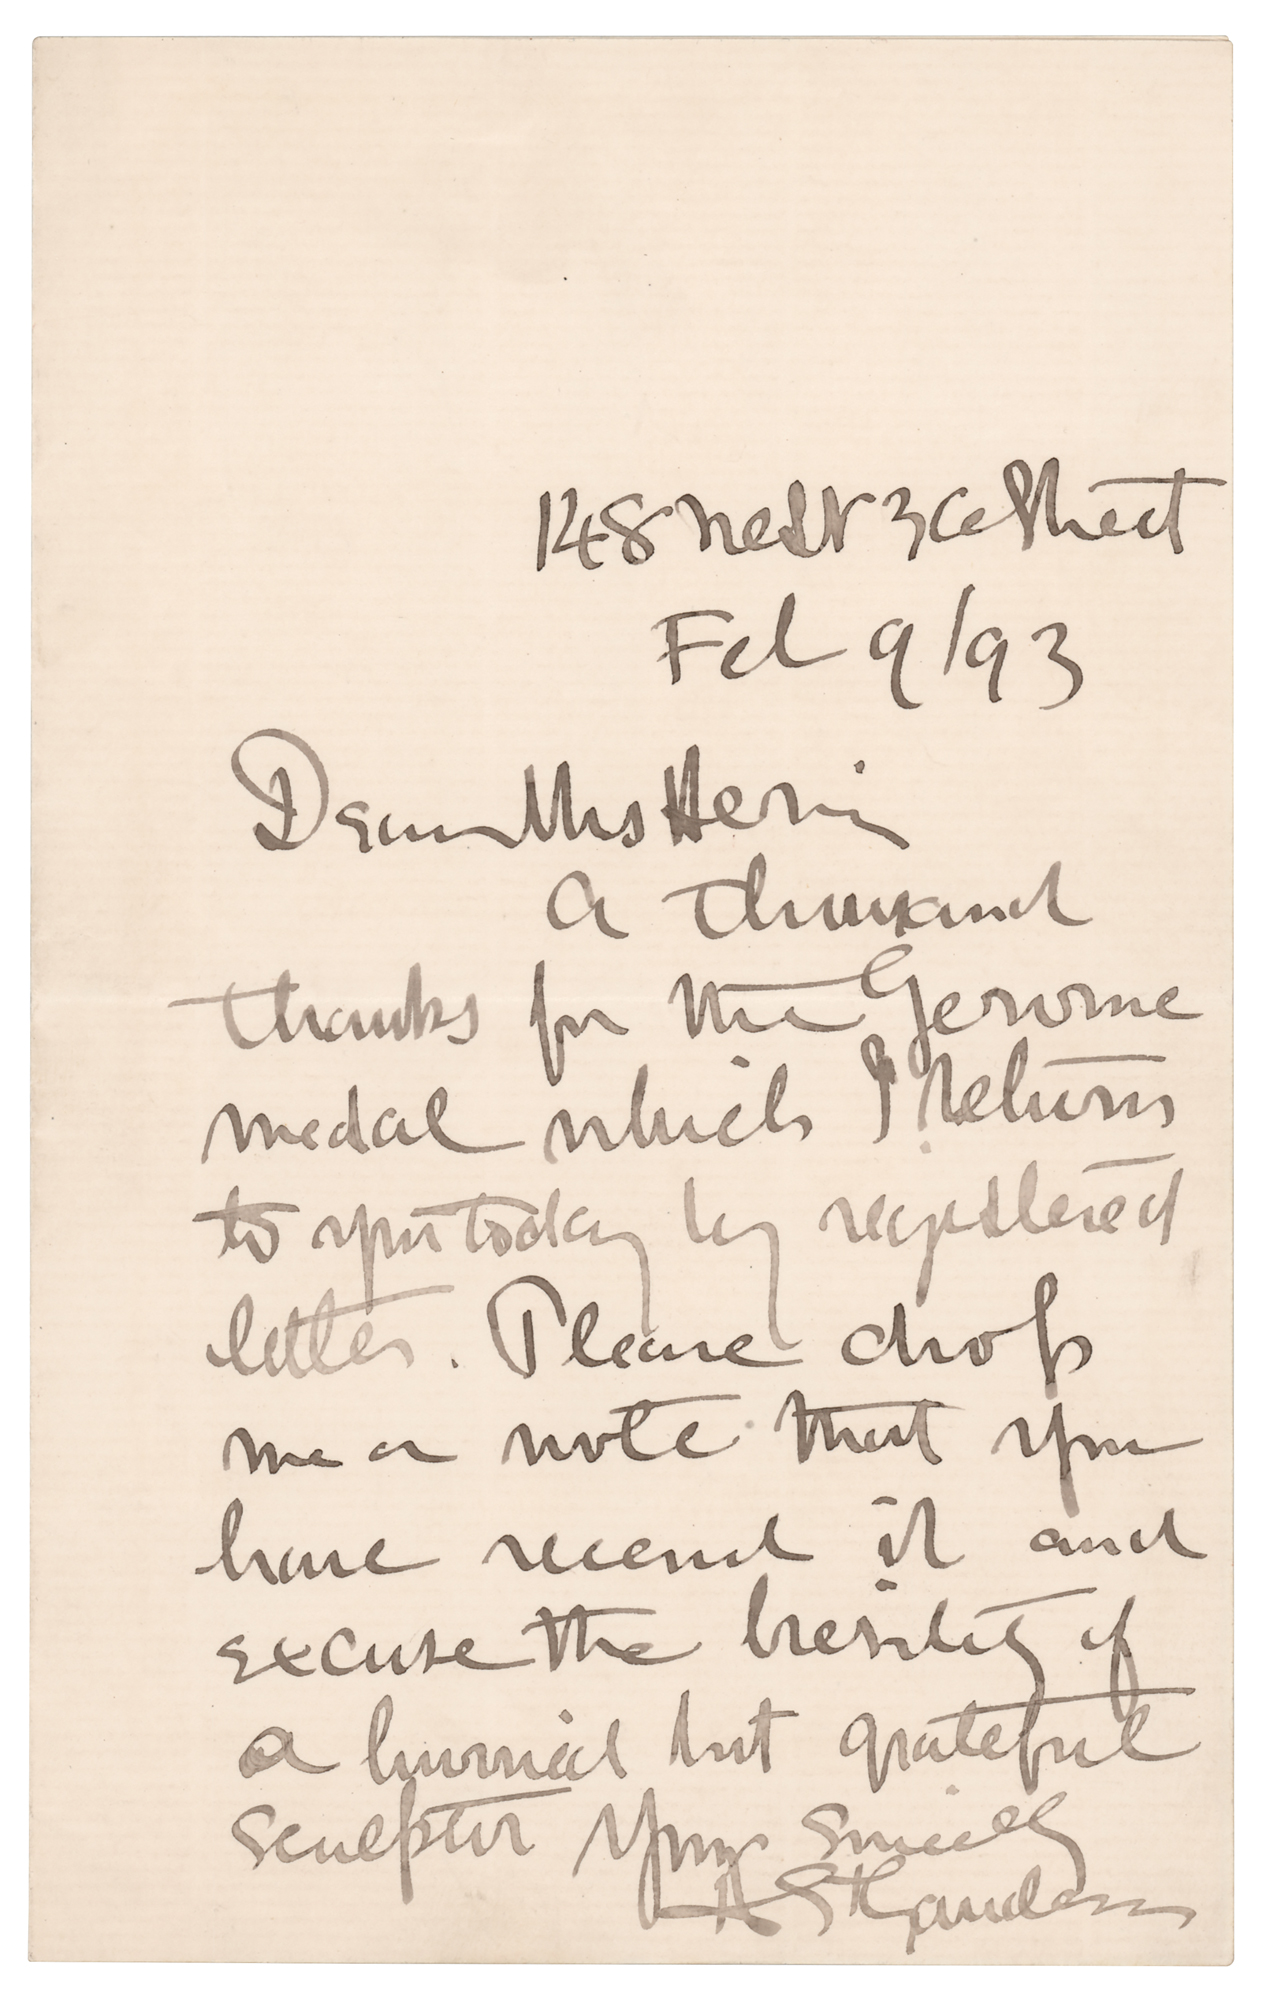 148 West 36 Street
Feb 9/93
Dear Mrs Hering
A thousand
thanks for the Gerome
medal which I return
to you today by registered
letter. Please drop
me a note that you
have received it and
excuse the brevity of
a hurried but grateful
sculptor Yours Sincerely
A St Gaudens